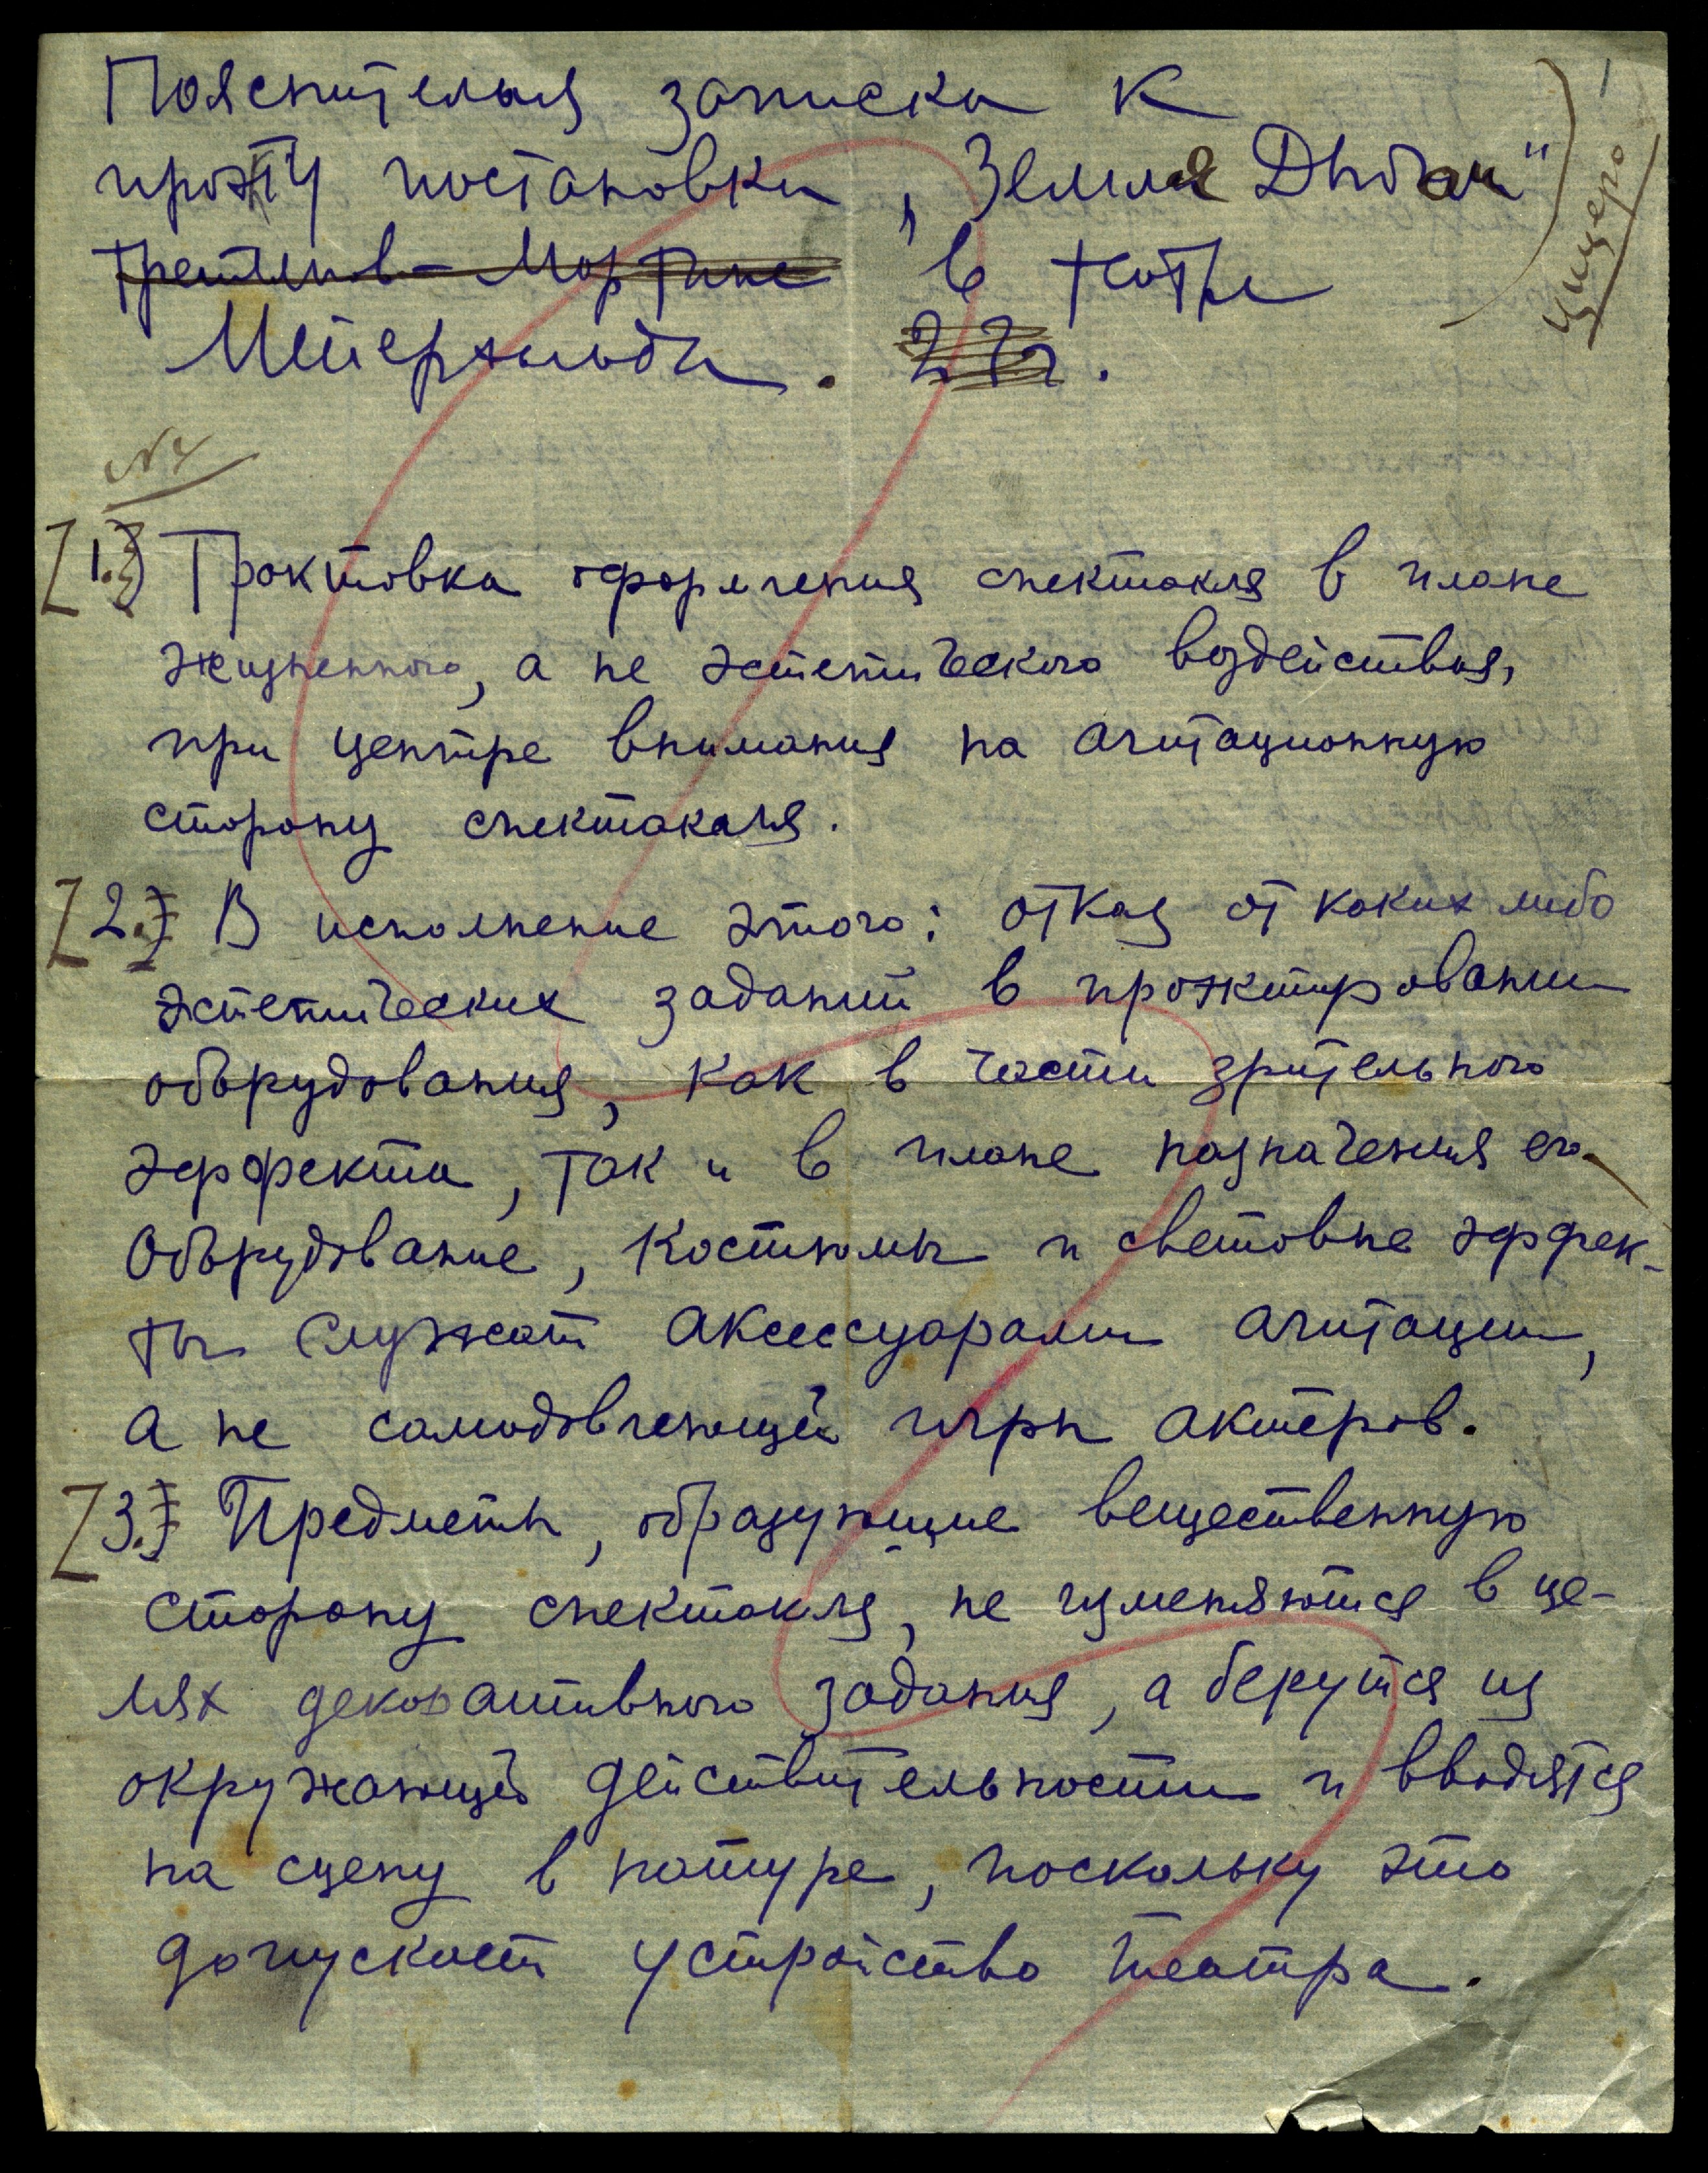 Пояснительная записка к
проэкту постановки „Земля Дыбом"
Третьяков-Мартине в театре
Мейерхольда.
1
Цицеро
N4
[1.) Трактовка оформления спектакля в плане
жизненного, а не эстетического воздействия,
при центре внимания на агитационную
сторону спектакля.
[2.) В исполнение этого: отказ от каких либо
эстетических заданий в проэктировании
оборудования, как в части зрительного
эффекта, так и в плане назначения его.
Оборудование, костюмы и световые эффек-
ты служат аксессуарами агитации,
а не самодовлеющей игры актеров.
[3.) Предметы, образующие вещественную
сторону спектакля, не изменяются в це-
лях декоративного задания, а берутся из
окружающей действительности и вводятся
на сцену в натуре, поскольку это
допускает устройство театра.